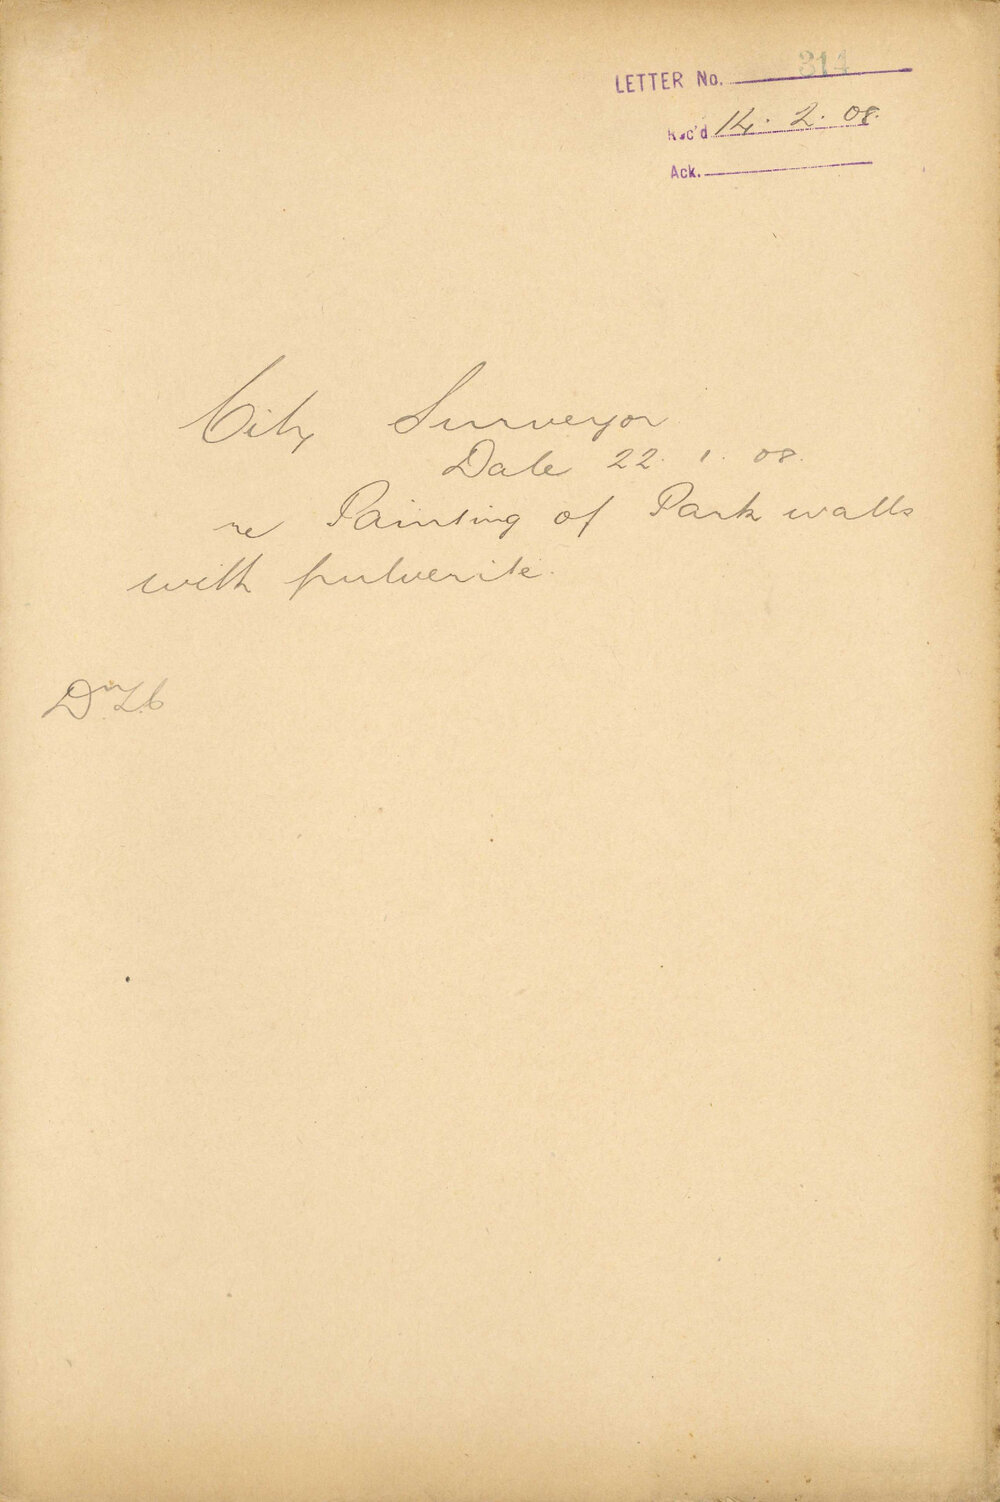 LETTER No. 314
Rec'd 14. 2. 08.
Ack.
City Surveyor
Date 22. 1. 08.
re Painting of Park walls
with pulverite.